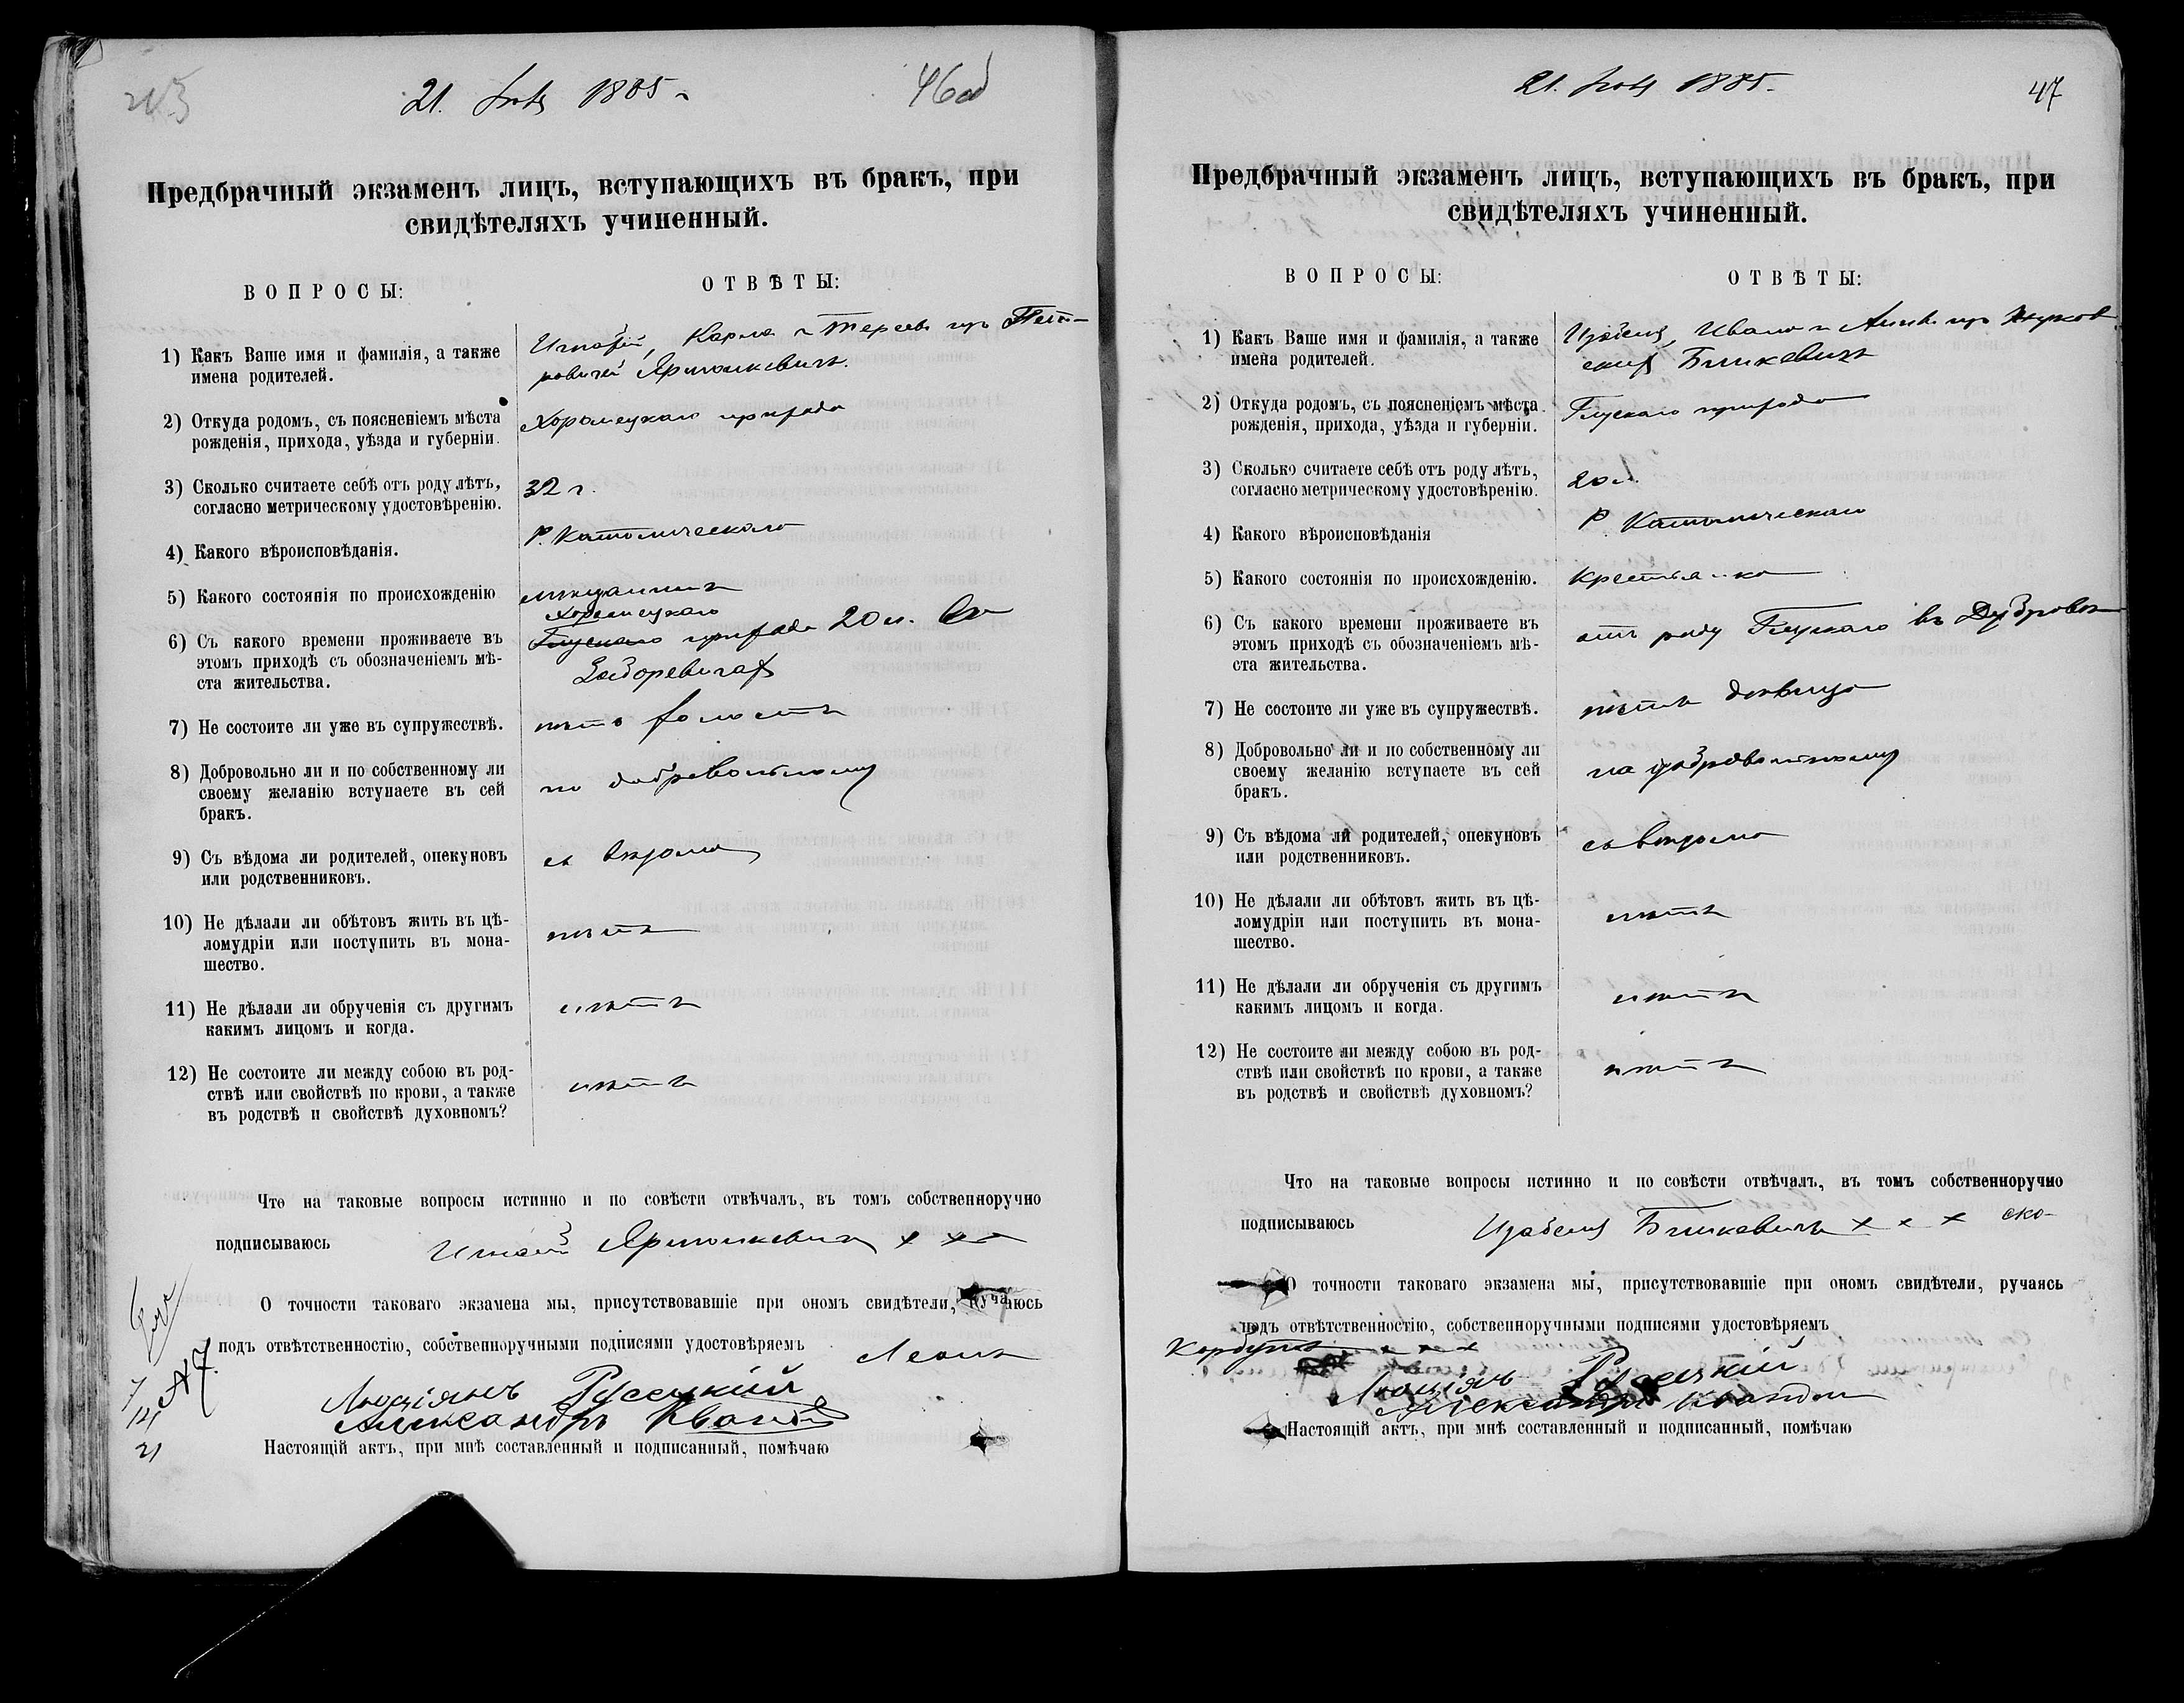 21. 1885
46об
Предбрачный экзаменъ лицъ, вступающихъ въ бракъ, при
свидѣтеляхъ учиненный.
ВОПРОСЫ:
ОТВѢТЫ:
1) Какъ Ваше имя и фамилія, а также
имена родителей.
Игнатій, Карла и Терезы изъ Пет-
ровичей Ярмолкевичъ.
2) Откуда родомъ, съ поясненіемъ мѣста
рожденія, прихода, уѣзда и губерніи.
прихода
3) Сколько считаете себѣ отъ роду лѣтъ,
согласно метрическому удостовѣренію.
32 г.
4) Какого вѣроисповѣданія.
Р. Католическаго
5) Какого состоянія по происхожденію
мѣщанинъ
6) Съ какого времени проживаете въ
этомъ приходѣ съ обозначеніемъ мѣ-
ста жительства.
Глускаго прихода 20 л. въ
7) Не состоите ли уже въ супружествѣ.
нѣтъ холостъ
8) Добровольно ли и по собственному ли
своему желанію вступаете въ сей
бракъ.
по добровольному
9) Съ вѣдома ли родителей, опекуновъ
или родственниковъ.
съ вѣдома
10) Не дѣлали ли обѣтовъ жить въ цѣ-
ломудріи или поступить въ мона-
шество.
нѣтъ
11) Не дѣлали ли обрученія съ другимъ
какимъ лицомъ и когда.
нѣтъ
12) Не состоите ли между собою въ род-
ствѣ или свойствѣ по крови, а также
въ родствѣ и свойствѣ духовномъ?
нѣтъ
Что на таковые вопросы истинно и по совѣсти отвѣчалъ, въ томъ собственноручно
подписываюсь Игнатій Ярмолкевичъ x x x
О точности таковаго экзамена мы, присутствовавшіе при ономъ свидѣтели, ручаюсь
подъ отвѣтственностію, собственноручными подписями удостовѣряемъ Леонъ
Люціянъ Русецкий
Александръ
Настоящій актъ, при мнѣ составленный и подписанный, помѣчаю
21. 1885.
47
Предбрачный экзаменъ лицъ, вступающихъ въ бракъ, при
свидѣтеляхъ учиненный.
ВОПРОСЫ:
ОТВѢТЫ:
1) Какъ Ваше имя и фамилія, а также
имена родителей.
Изабеля, Ивана и Анны изъ Жуков-
скихъ Блинкевичъ
2) Откуда родомъ, съ поясненіемъ мѣста
рожденія, прихода, уѣзда и губерніи.
Глускаго прихода
3) Сколько считаете себѣ отъ роду лѣтъ,
согласно метрическому удостовѣренію.
20 л.
4) Какого вѣроисповѣданія
Р. Католическаго
5) Какого состоянія по происхожденію.
крестьянка
6) Съ какого времени проживаете въ
этомъ приходѣ съ обозначеніемъ мѣ-
ста жительства.
отъ роду Глускаго въ Дубровкѣ
7) Не состоите ли уже въ супружествѣ.
нѣтъ дѣвица
8) Добровольно ли и по собственному ли
своему желанію вступаете въ сей
бракъ.
па добровольному
9) Съ вѣдома ли родителей, опекуновъ
или родственниковъ.
съ вѣдома
10) Не дѣлали ли обѣтовъ жить въ цѣ-
ломудріи или поступить въ мона-
шество.
нѣтъ
11) Не дѣлали ли обрученія съ другимъ
какимъ лицомъ и когда.
нѣтъ
12) Не состоите ли между собою въ род-
ствѣ или свойствѣ по крови, а также
въ родствѣ и свойствѣ духовномъ?
нѣтъ
Что на таковые вопросы истинно и по совѣсти отвѣчалъ, въ томъ собственноручно
подписываюсь Изабеля Блинкевичъ x x x
О точности таковаго экзамена мы, присутствовавшіе при ономъ свидѣтели, ручаясь
подъ отвѣтственностію, собственноручными подписями удостовѣряемъ
x x x
Люціянъ Русецкій
Александръ
Настоящій актъ, при мнѣ составленный и подписанный, помѣчаю